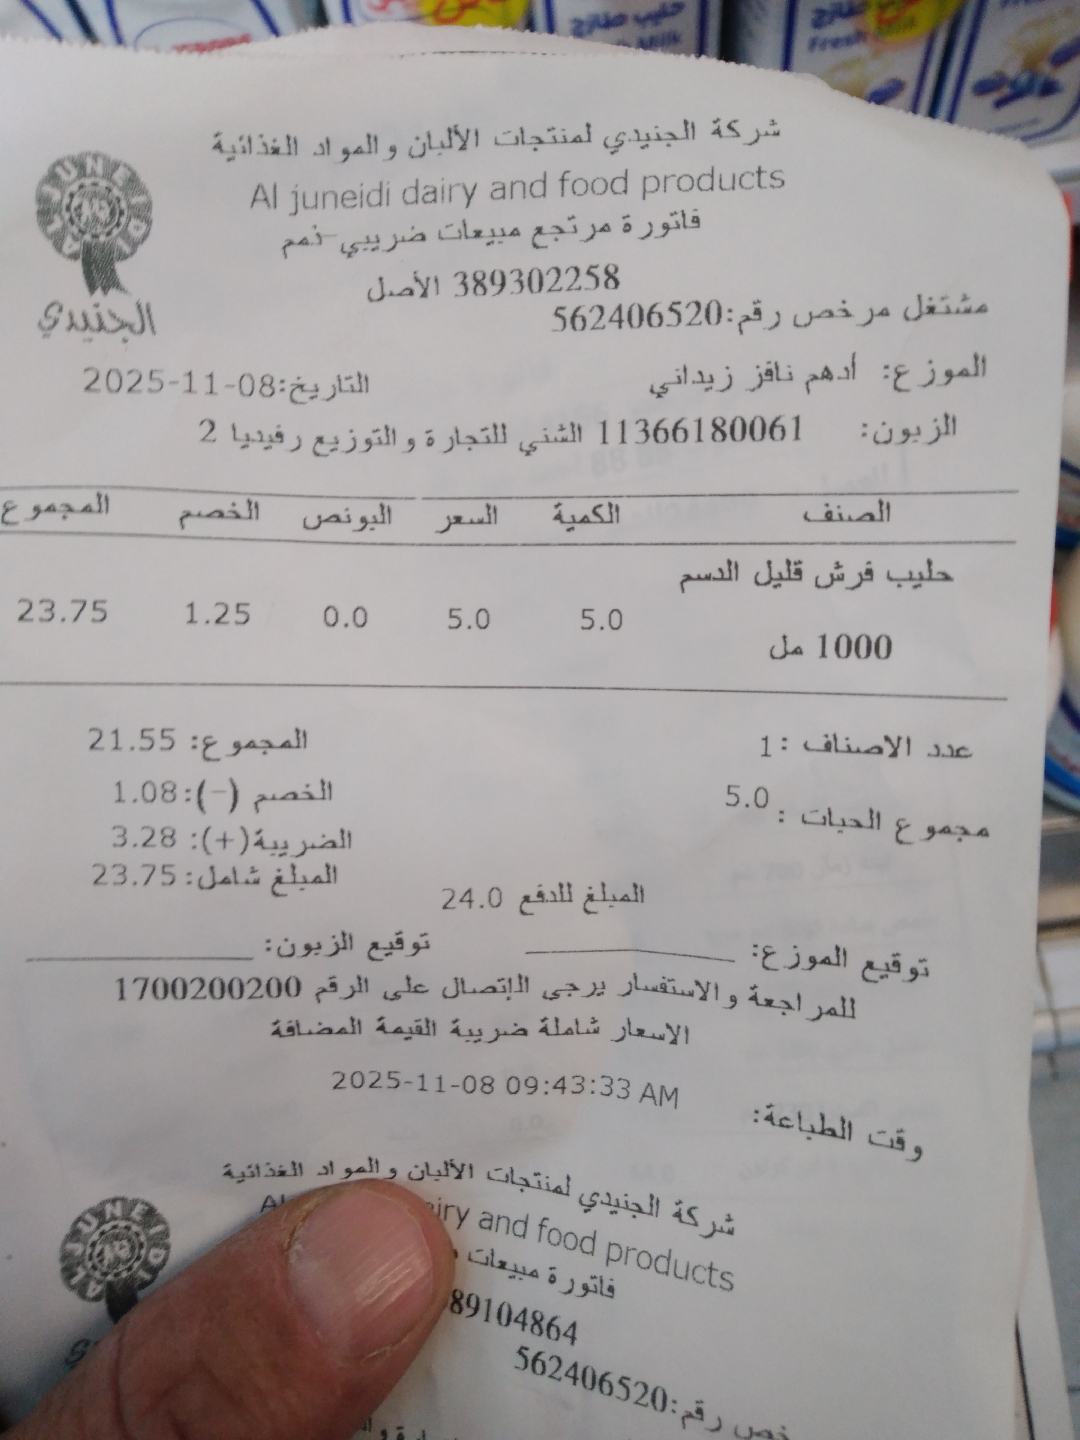 حليب طازج
Fresh Milk
حليب طازج
Fresh Milk
شركة الجنيدي لمنتجات الألبان والمواد الغذائية
Al juneidi dairy and food products
AL JUNEIDI
الجنيدي
فاتورة مرتجع مبيعات ضريبي-ذمم
389302258 الأصل
مشتغل مرخص رقم:562406520
الموزع: أدهم نافز زيداني التاريخ:2025-11-08
الزبون: 11366180061 الشني للتجارة والتوزيع رفيديا 2
الصنف الكمية السعر البونص الخصم المجموع
حليب فرش قليل الدسم
5.0 5.0 0.0 1.25 23.75
1000 مل
عدد الاصناف :1 المجموع: 21.55
مجموع الحبات : 5.0 الخصم (-):1.08
الضريبة(+): 3.28
المبلغ شامل: 23.75
المبلغ للدفع 24.0
توقيع الموزع: توقيع الزبون:
للمراجعة والاستفسار يرجى الإتصال على الرقم 1700200200
الاسعار شاملة ضريبة القيمة المضافة
وقت الطباعة: 2025-11-08 09:43:33 AM
شركة الجنيدي لمنتجات الألبان والمواد الغذائية
and food products
AL JUNEIDI
فاتورة مبيعات
89104864
رقم:562406520